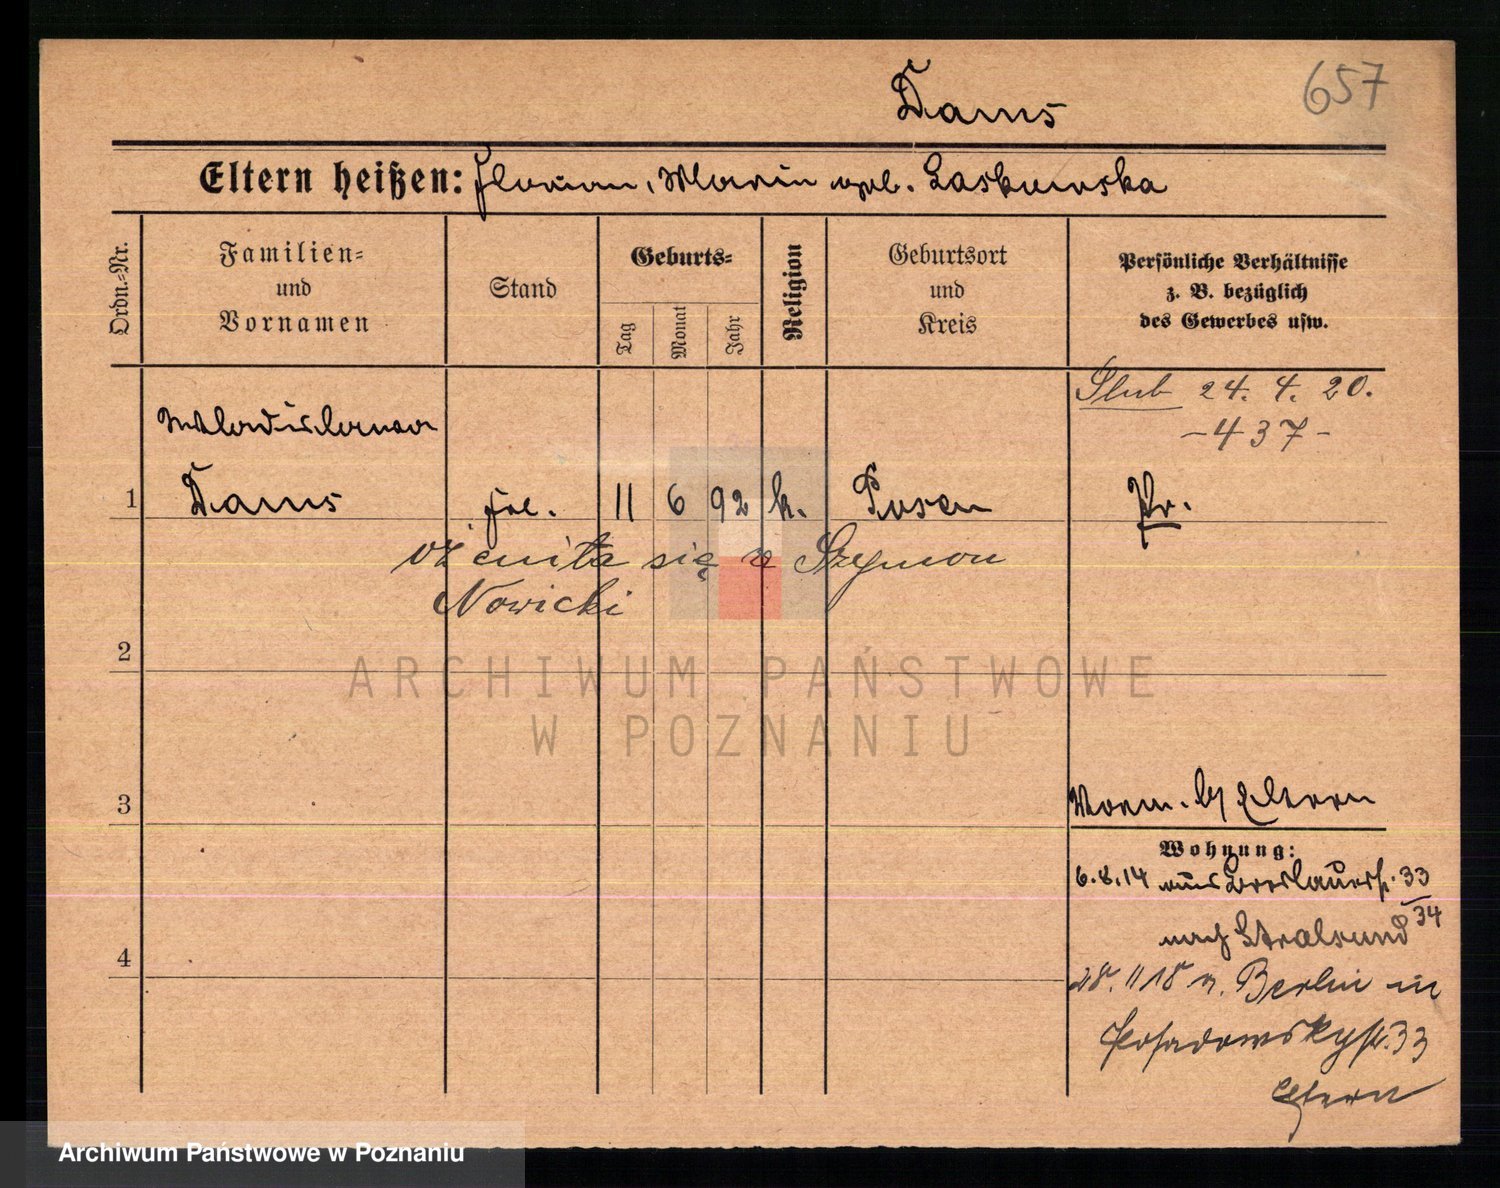 Dams
657
Eltern heißen: Florian, Maria geb. Laskowska
Ordn.-Nr.
Familien-
und
Vornamen
Stand
Geburts-
Tag
Monat
Jahr
Religion
Geburtsort
und
Kreis
Persönliche Verhältnisse
z. B. bezüglich
des Gewerbes usw.
Ślub 24. 4. 20.
-437-
Wladislawa
1 Dams frl. 11 6 92 k. Posen Pr.
ożeniła się z Szymon
Nowicki
2
ARCHIWUM PAŃSTWOWE
W POZNANIU
3
Eltern
Wohnung:
6.8.14 aus Breslauerstr. 33
34
nach Stralsund
28. 11 18 v. Berlin in
Posadowskystr. 33
Eltern
4
Archiwum Państwowe w Poznaniu